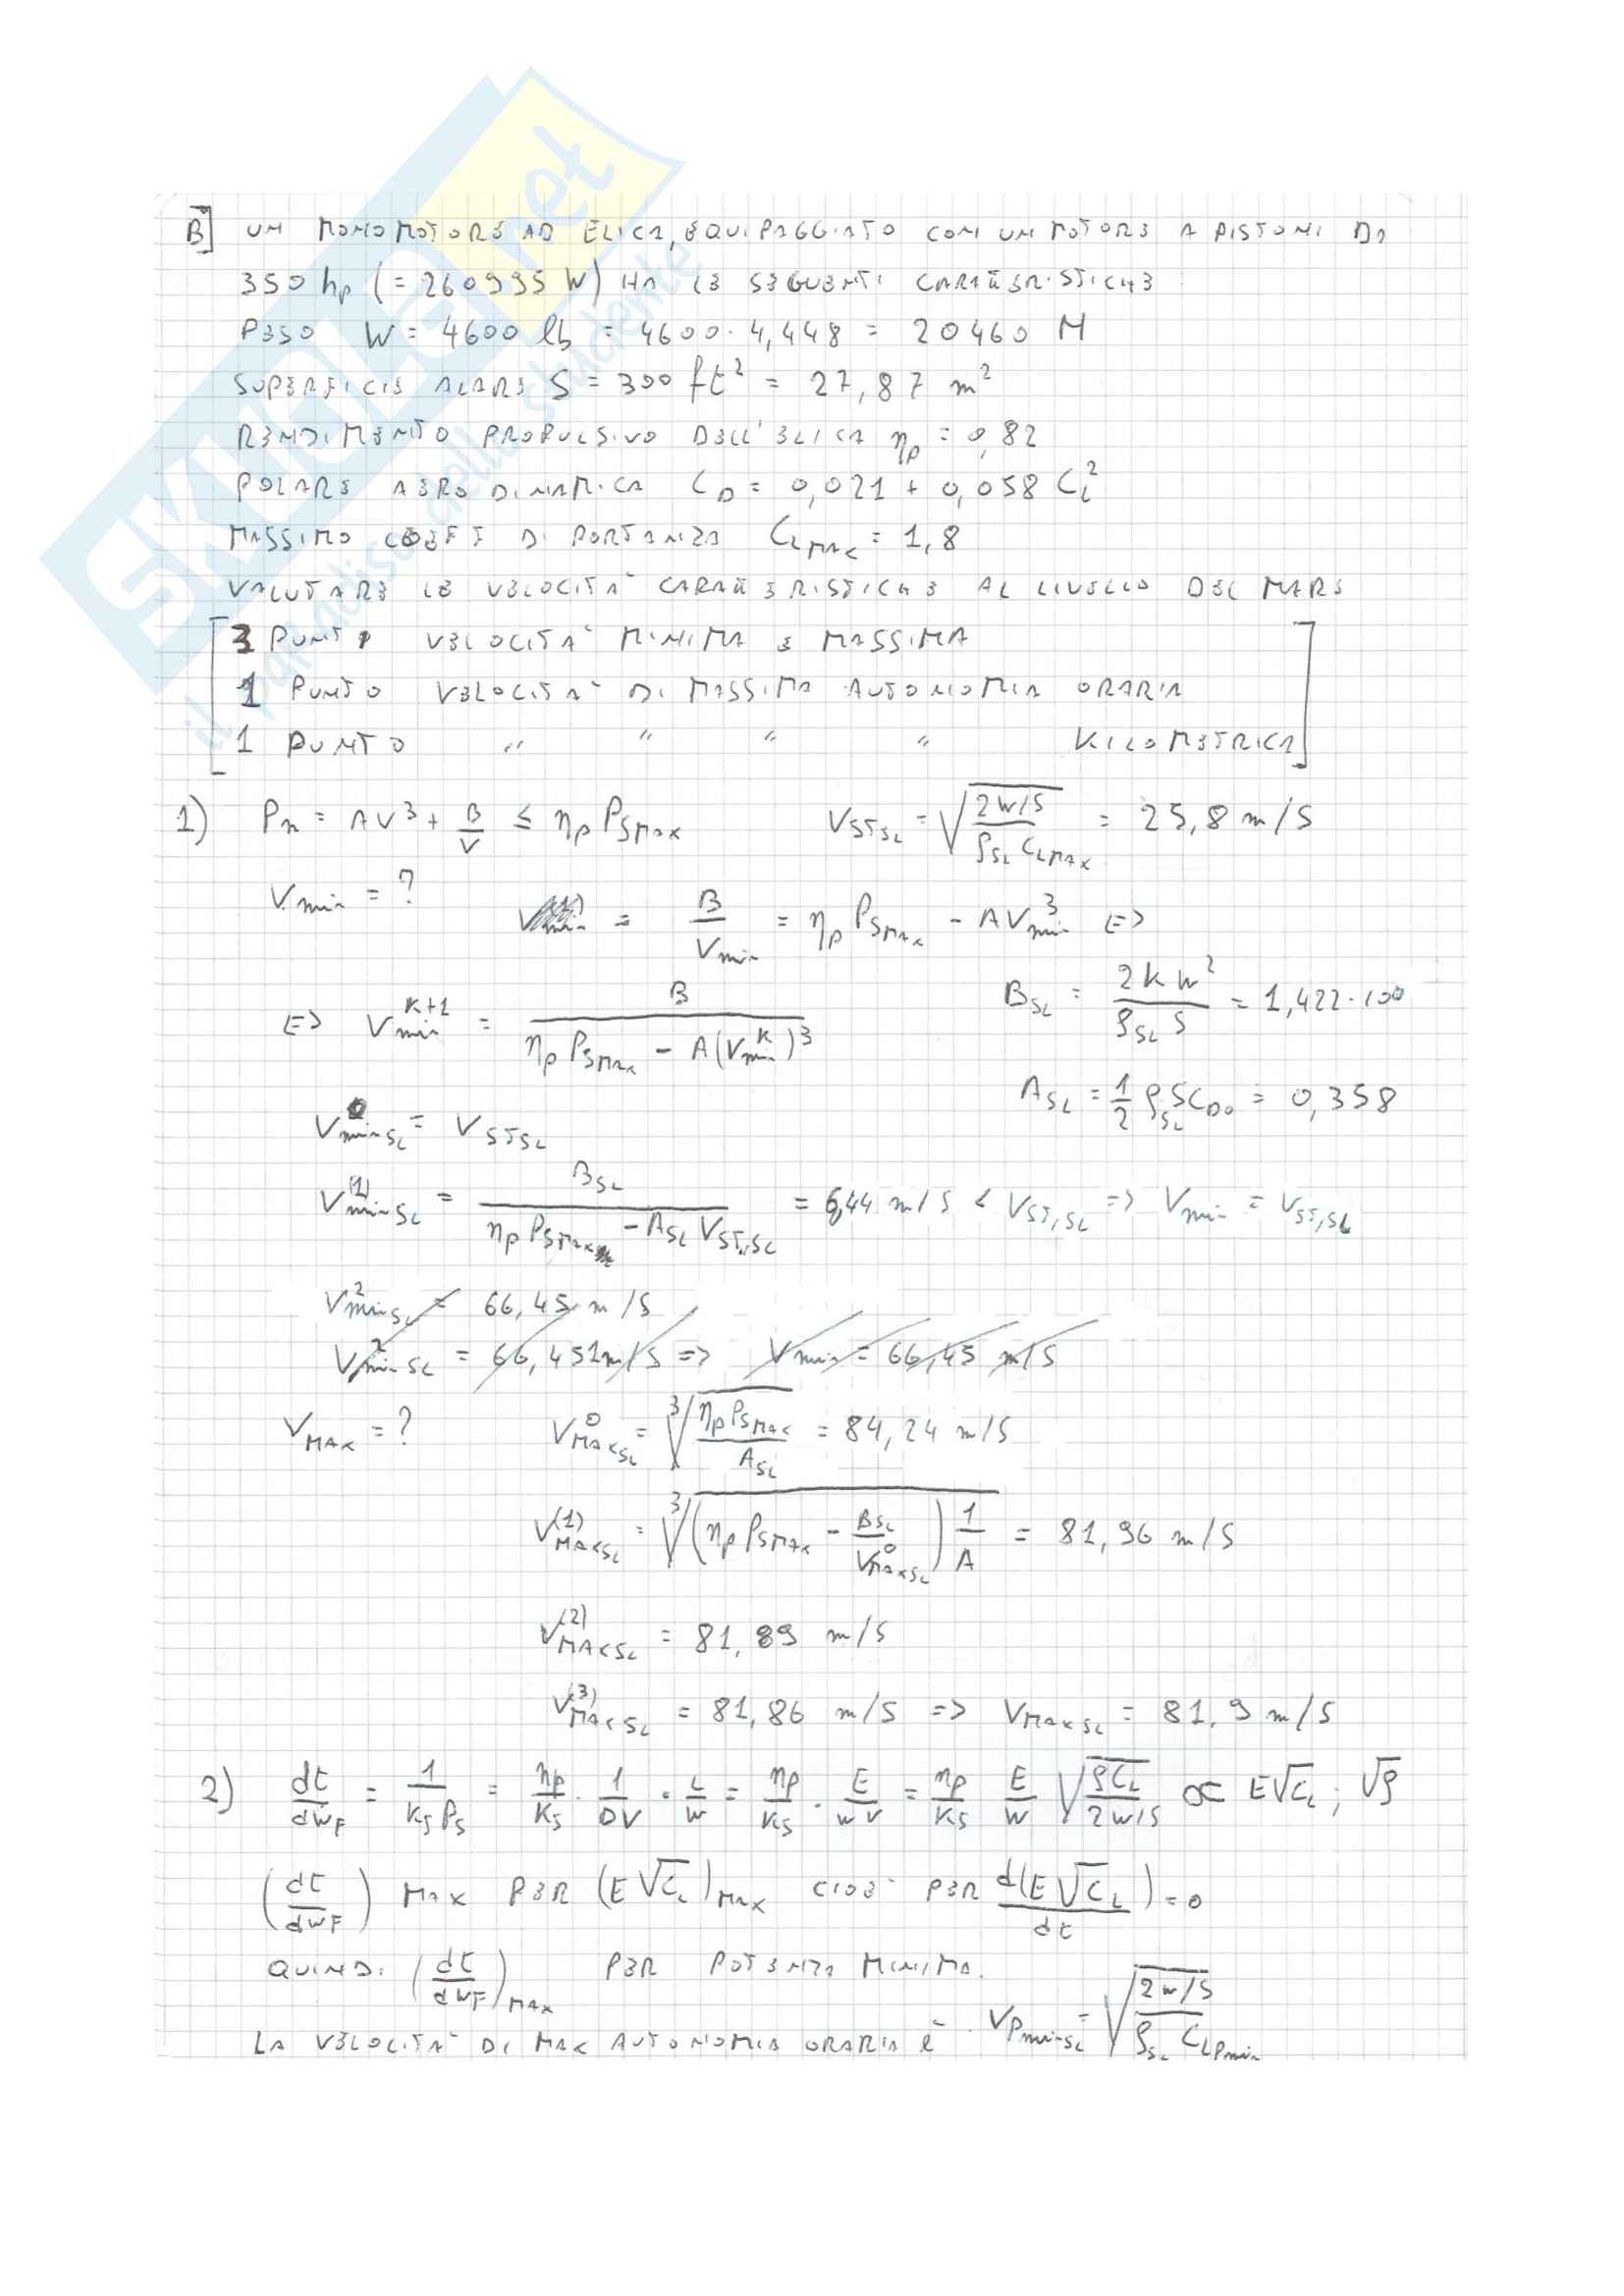 SKUOLA.net
il paradiso dello studente
B] UN MONOMOTORE AD ELICA, EQUIPAGGIATO CON UN MOTORE A PISTONI DA
350 hp (= 260995 W) HA LE SEGUENTI CARATTERISTICHE
PESO W = 4600 lb = 4600 · 4,448 = 20460 N
SUPERFICIE ALARE S = 300 ft² = 27,87 m²
RENDIMENTO PROPULSIVO DELL'ELICA ηp = 0,82
POLARE AERODINAMICA C_D = 0,021 + 0,058 C_L²
MASSIMO COEFF DI PORTANZA C_LMAX = 1,8
VALUTARE LE VELOCITA' CARATTERISTICHE AL LIVELLO DEL MARE
[3 PUNTI VELOCITA' MINIMA E MASSIMA
1 PUNTO VELOCITA' DI MASSIMA AUTONOMIA ORARIA
1 PUNTO " " " " KILOMETRICA]
1) Pn = AV³ + B/V ≤ ηp PSMAX V_STSL = √((2W/S)/(ρSL CLMAX)) = 25,8 m/s
Vmin = ? = B/Vmin = ηp PSMAX - AV³min <=>
<=> Vmin^(K+1) = B/(ηp PSMAX - A(Vmin^K)³) B_SL = 2KW²/(ρSL S) = 1,422·10⁶
A_SL = 1/2 ρSL S CD0 = 0,358
V⁰minSL = V_STSL
V⁽¹⁾minSL = B_SL/(ηp PSMAX - A_SL V_ST,SL) = 6,44 m/s < V_ST,SL => Vmin = V_ST,SL
V²minSL = 66,45 m/s
V²minSL = 66,451 m/s => Vmin = 66,45 m/s
VMAX = ? V⁰MAXSL = ∛(ηp PSMAX/A_SL) = 84,24 m/s
V⁽¹⁾MAXSL = ∛((ηp PSMAX - B_SL/V⁰MAXSL) 1/A) = 81,96 m/s
V⁽²⁾MAXSL = 81,89 m/s
V⁽³⁾MAXSL = 81,86 m/s => VMAXSL = 81,9 m/s
2) dt/dWF = 1/(KS PS) = ηp/KS · 1/DV · L/W = ηp/KS · E/WV = ηp/KS E/W √(ρCL/(2W/S)) ∝ E√CL ; √ρ
(dt/dWF) MAX PER (E√CL)MAX CIOE' PER d(E√CL)/dt = 0
QUINDI (dt/dWF)MAX PER POTENZA MINIMA.
LA VELOCITA' DI MAX AUTONOMIA ORARIA è VPminSL = √((2W/S)/(ρSL CLPmin))